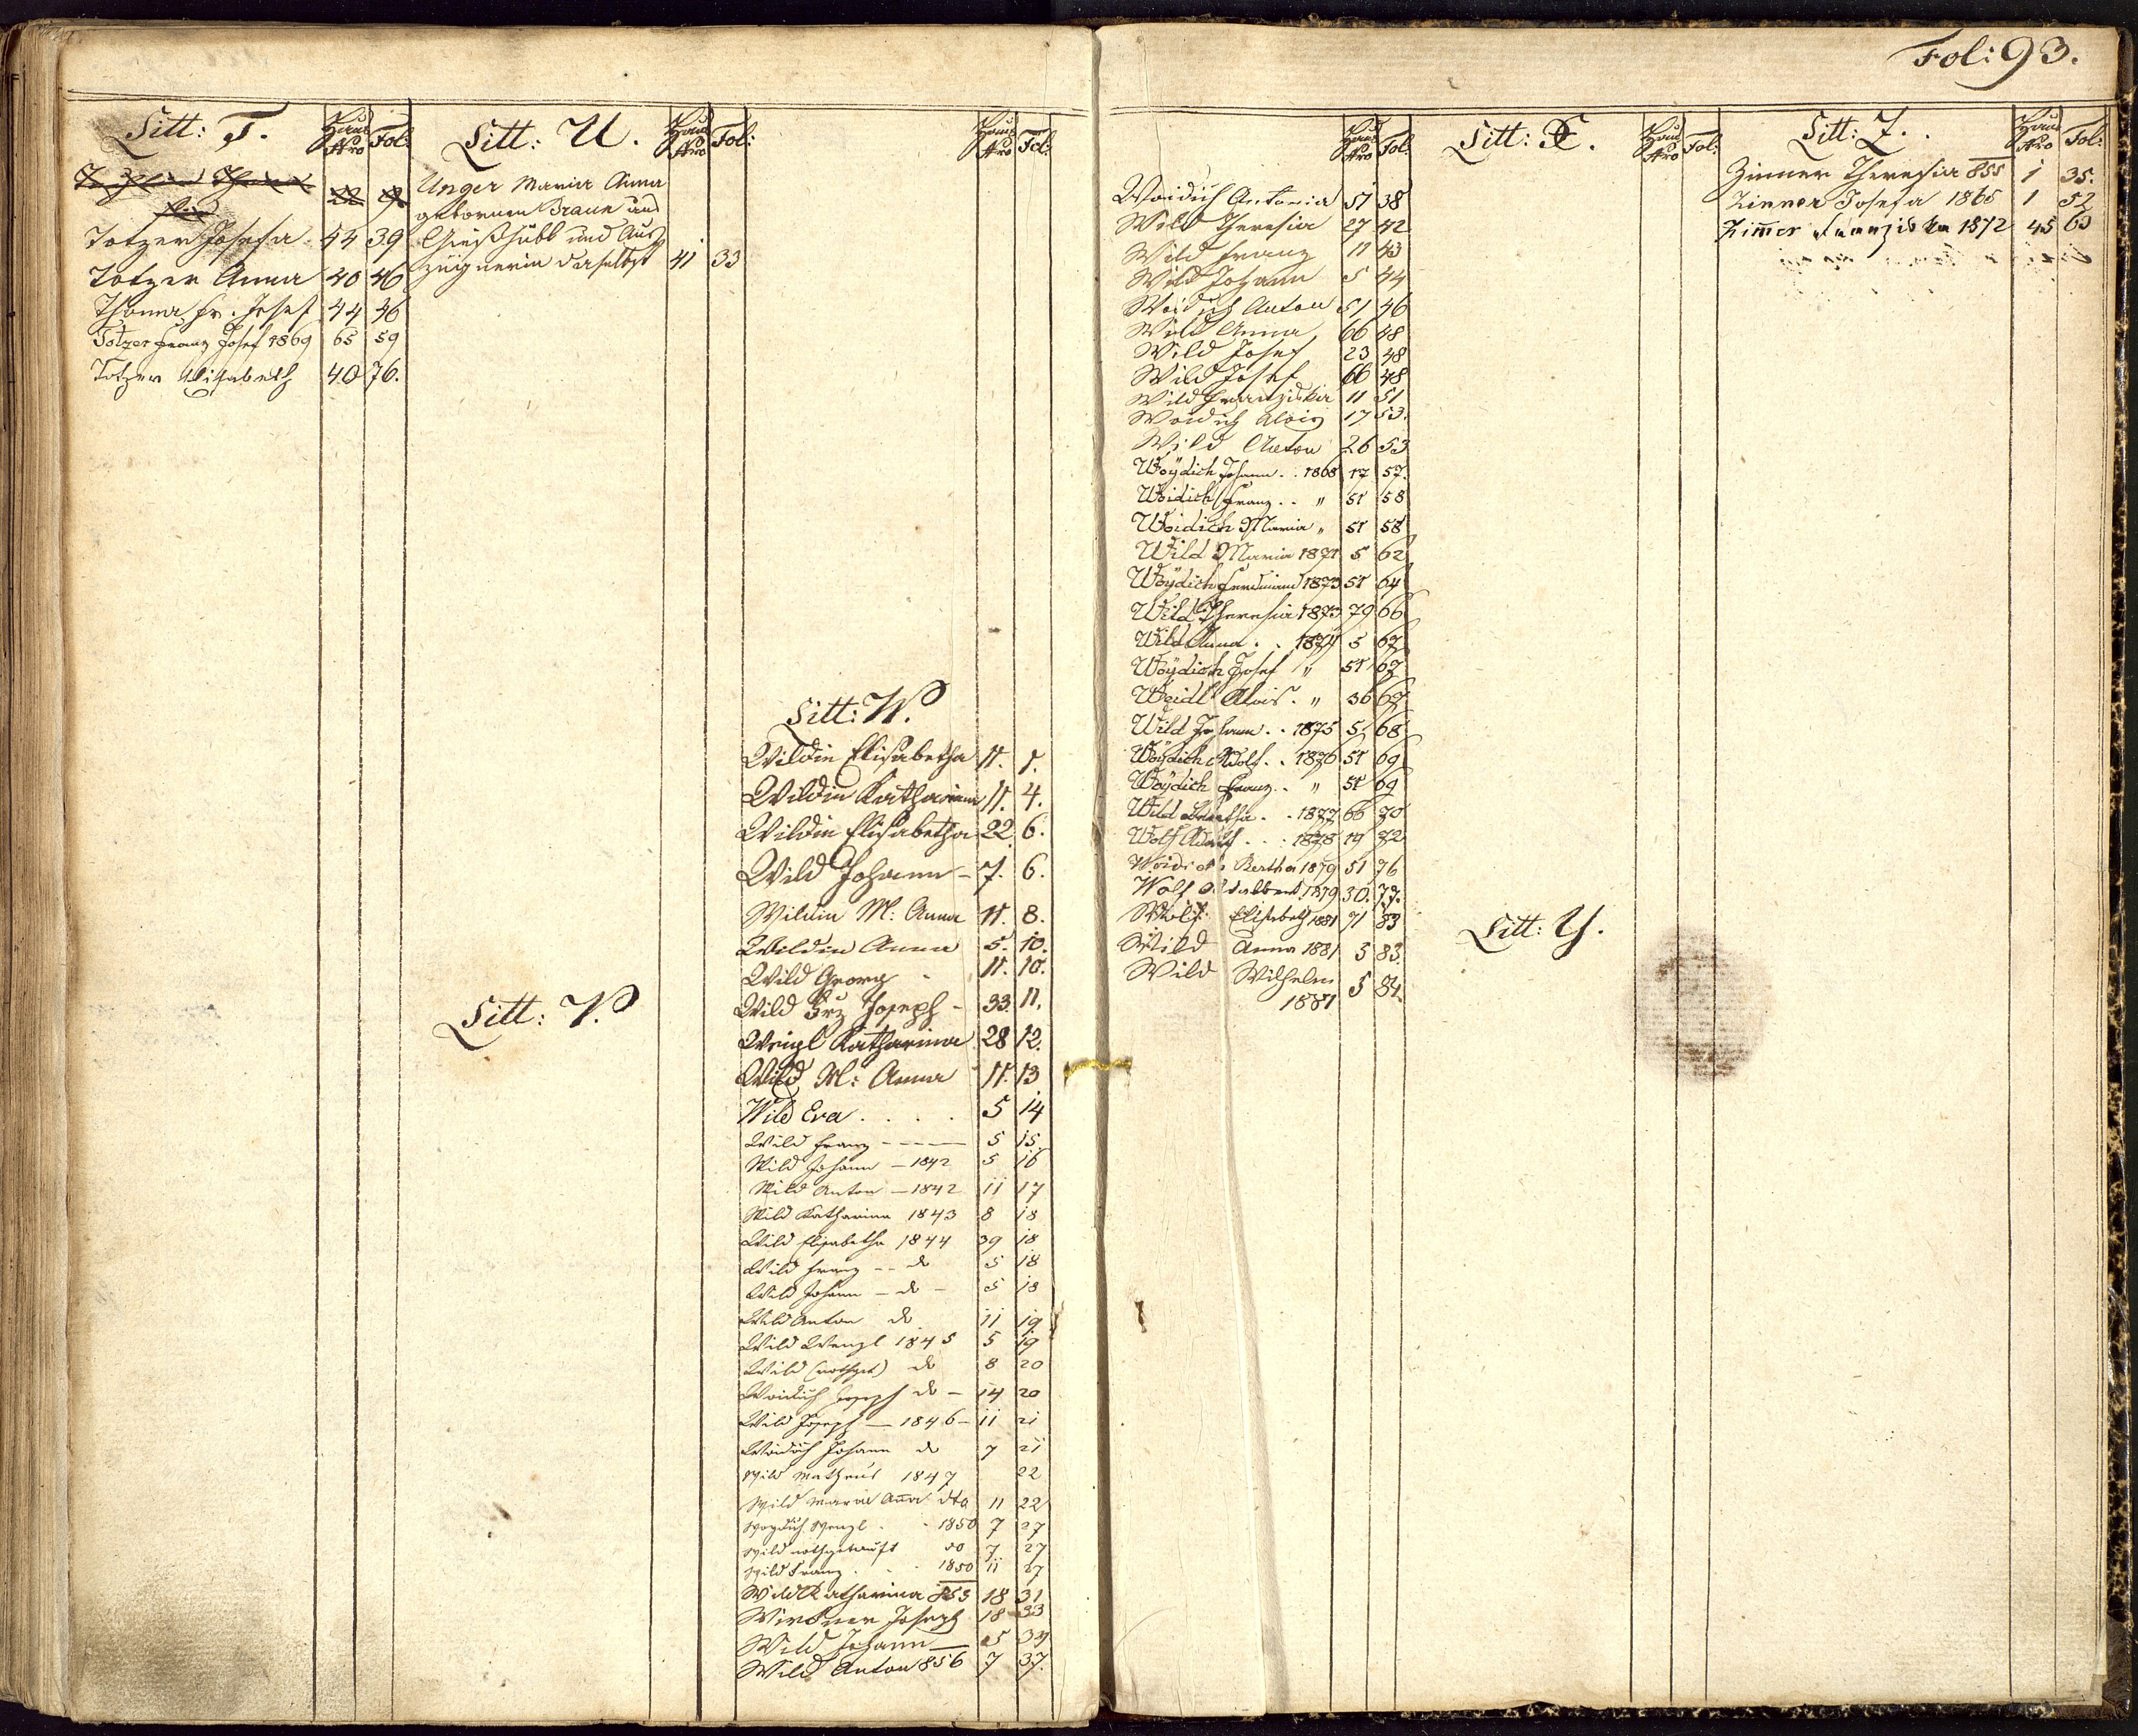 Fol: 93.
Litt: T. Haus Nro Fol:
Totzer Josefa 44 39
Totzer Anna 40 46
Thoma Fr. Josef 44 46
Totzer Franz Josef 1869 65 59
Totzer Elisabeth 40 76.
Litt: U. Haus Nro Fol:
Unger Maria Anna
geborene Braun aus
Gießhübl und Aus-
züglerin daselbst 41 33
Litt: V.
Haus Nro Fol:
Litt: W.
Wildin Elisabetha 11. 1.
Wildin Katharina 11. 4.
Wildin Elisabetha 22. 6.
Wild Johann - 7. 6.
Wildin M: Anna 11. 8.
Wildin Anna 5. 10.
Wild Georg - 11. 10.
Wild Frz Joseph - 33. 11.
Weigl Katharina 28 12.
Wild M: Anna 11. 13
Wild Eva . . . . 5 14
Wild Franz ----- 5 15.
Wild Johann - 1842 5 16
Wild Anton - 1842 11 17
Wild Katharina 1843 8 18
Wild Elisabetha 1844 39 18
Wild Franz -- do 5 18
Wild Johann - do - 5 18
Wild Anton do 11 19
Wild Wenzl 1845 5 19
Wild (nothget) do 8 20
Woidich Joseph do - 14 20
Wild Joseph - 1846 - 11 21
Woidich Johann do 7 21
Wild Matheus 1847 22
Wild Maria Anna dto 11 22
Woydich Wenzl . . 1850 7 27
Wild nothgetauft do 7 27
Wild Franz . . 1850 11 27
Wild Katharina 853 18 31
Wirkner Joseph 18 33
Wild Johann — 5 34
Wild Anton 856 7 37.
Haus Nro Fol:
Woidich Antonia 51 38
Wild Theresia 27 42
Wild Franz 11 43
Wild Johann 5 44
Woidich Anton 51 46
Wild Anna 66 48
Wild Josef 23 48
Wild Josef 66 48
Wild Franziska 11 51
Woidich Alois 17 53.
Wild Anton 26 53
Woÿdich Johann . . 1868 17 57.
Woidich Franz . . " 51 58
Woidich Maria " 51 58
Wild Maria 1871 5 62
Woÿdich Ferdinand 1873 51 64
Wild Theresia 1873 79 66
Wild Anna . . 1874 5 67
Woÿdich Josef " 51 67
Weidl Alois . " 36 67
Wild Johann . . 1875 5. 68
Woÿdich Adolf . . 1876 51 69
Woÿdich Franz . . " 51 69
Wild Bertha . . 1877 66 70
Wolf Adolf . . . 1878 19 72
Woidich Bertha 1879 51 76
Wolf Adalbert 1879 30. 77.
Wolf Elisabeth 1881 71 83
Wild Anna 1881 5 83.
Wild Wilhelm 5 84.
1881
Litt: X. Haus Nro Fol:
Litt: Y.
Litt: Z. Haus Nro Fol:
Zinner Theresia 855 1 35.
Zinner Josefa 1865 1 52
Zinner Franziska 1872 45 63